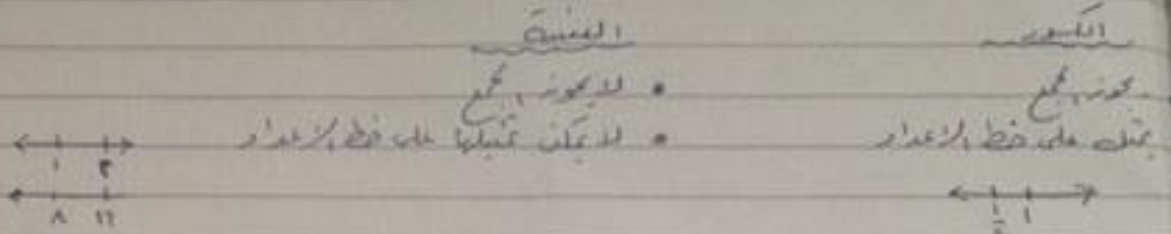 الكسور
يجوز الجمع
يمثل على خط الأعداد
١ ١
٢
النسبة
• لا يجوز الجمع
• لا يمكن تمثيلها على خط الأعداد
١ ٢
٨ ١٦